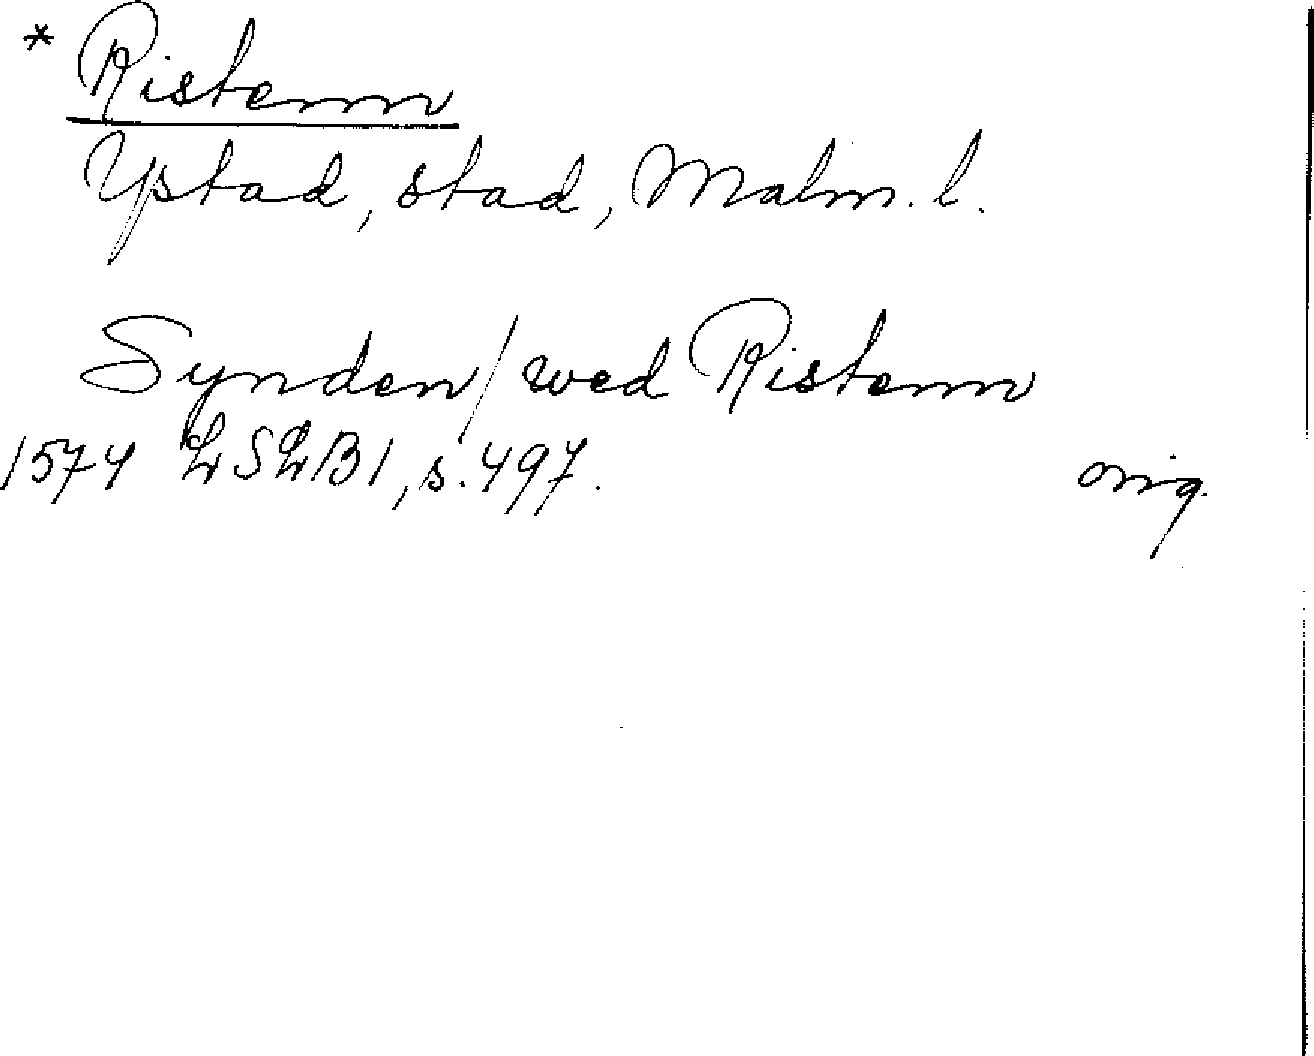 * Ristenn
Ystad, stad, Malm. l.
Synden/wed Ristenn
1574 LSLB1, s. 497.
orig.